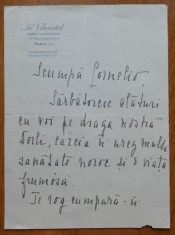 Scumpă Cornelio,
Sărbătoresc alături
cu voi pe draga noastră
căreia îi urez multă
sănătate noroc și o viață
frumoasă.
Te rog cumpără-i